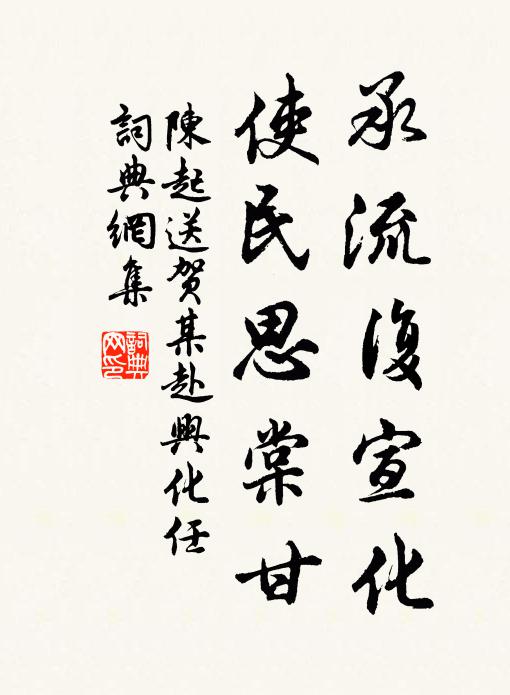 承流復宣化
使民思棠甘
陳起送賀某赴興化任
詞典網集
詞典网印